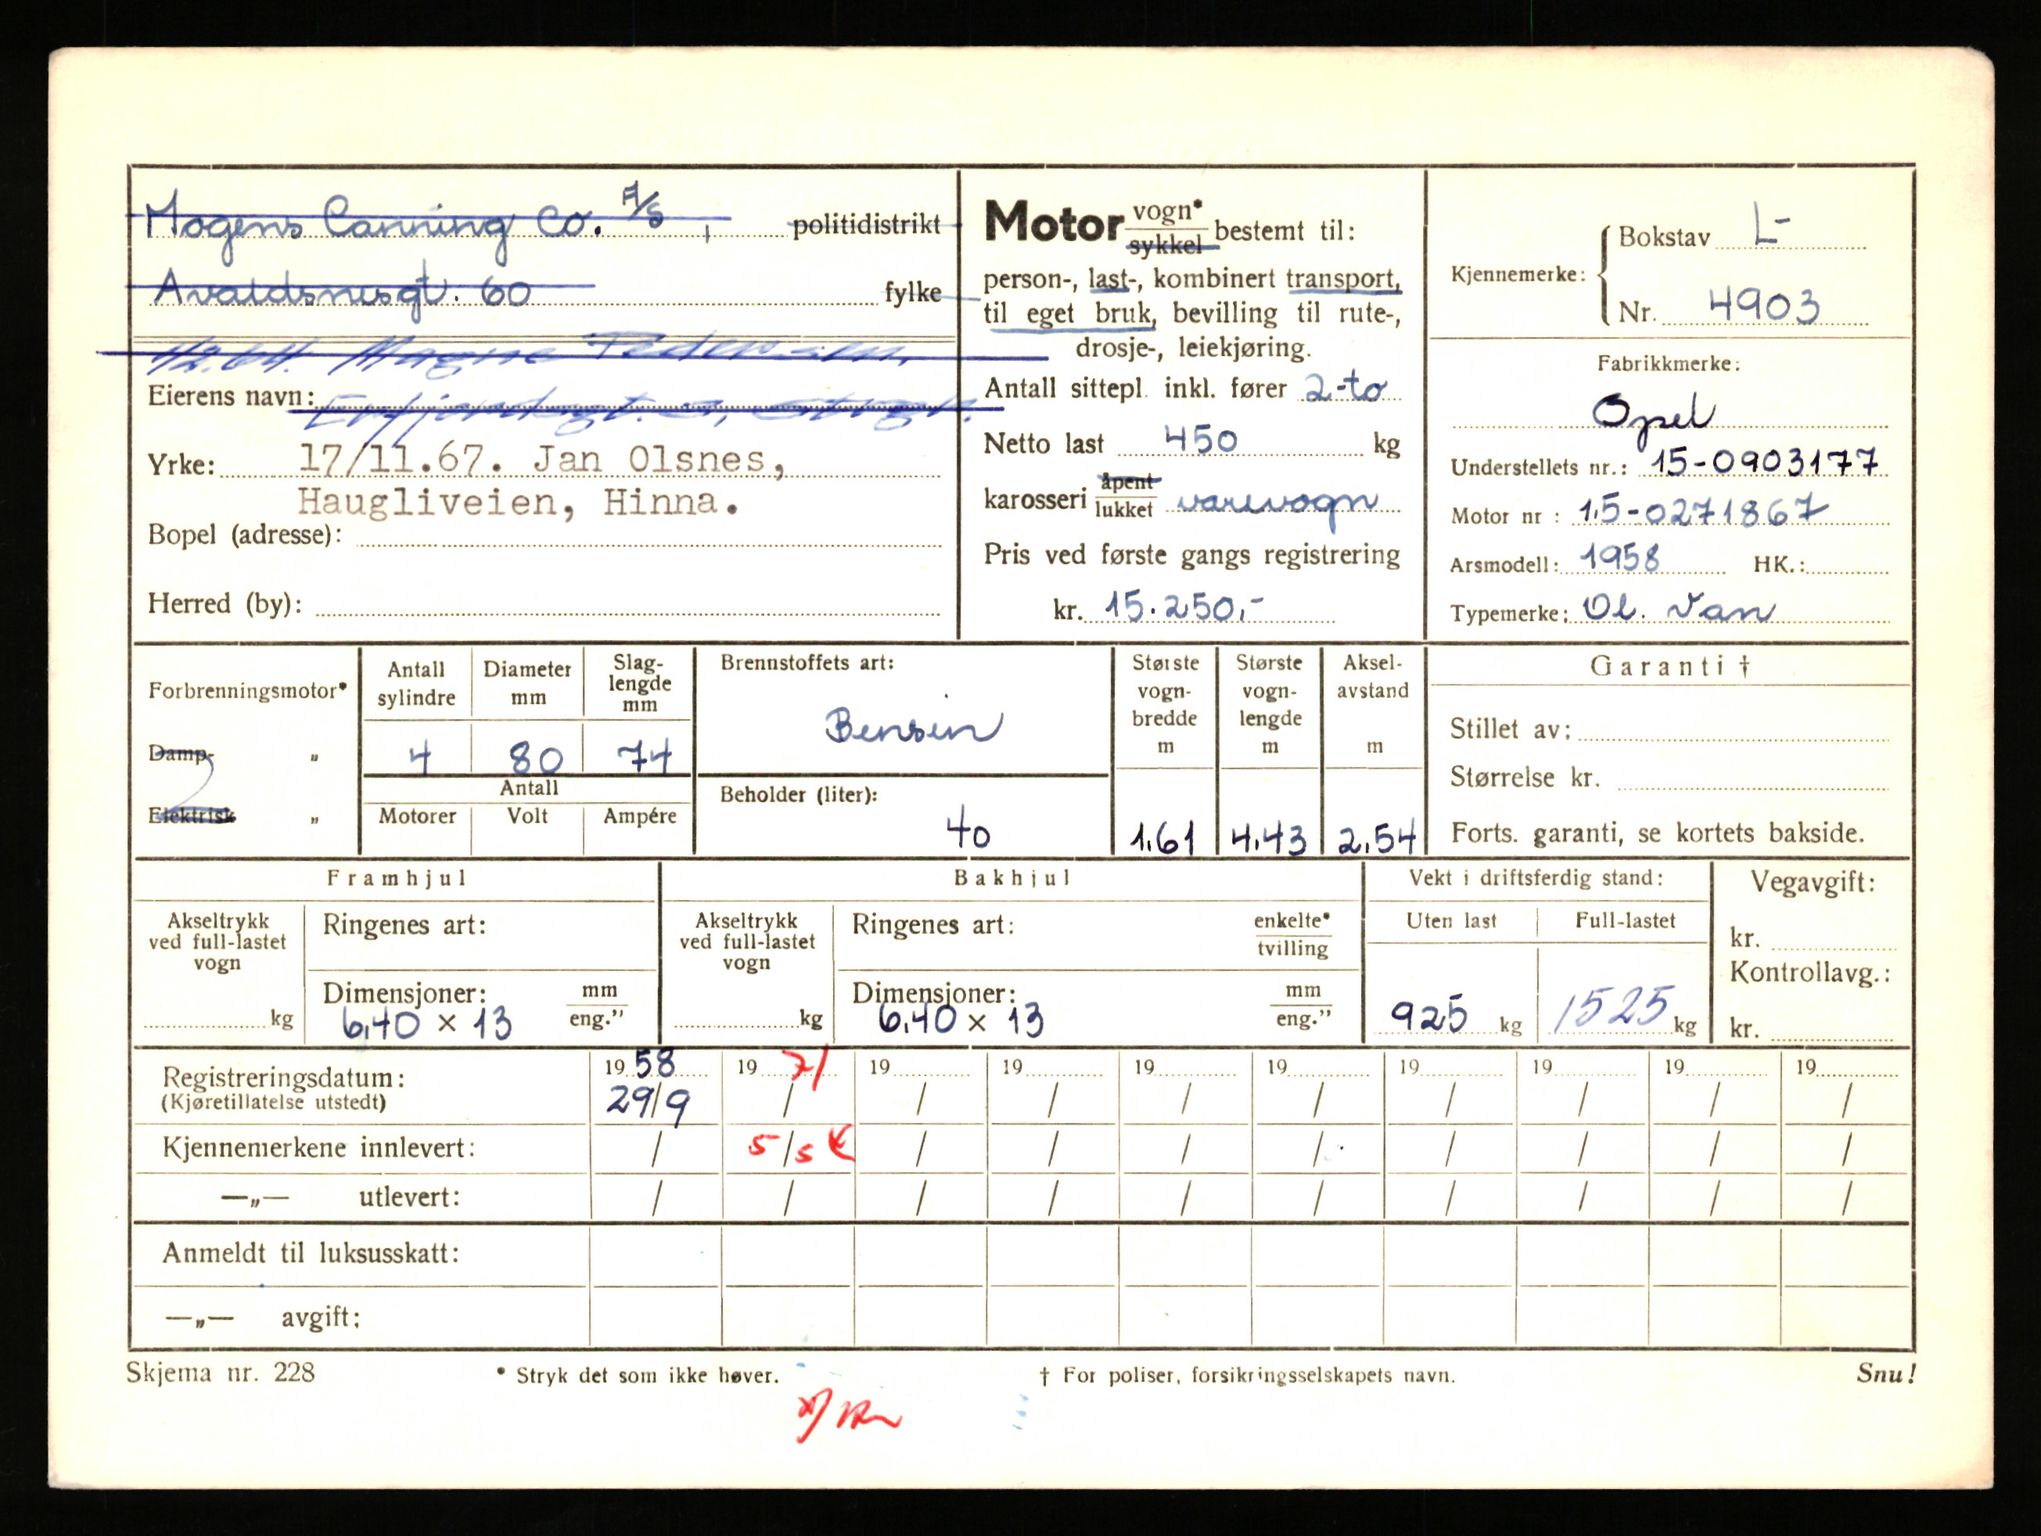 Mogens Canning Co. A/S, politidistrikt
Avaldsnesgt. 60 fylke
Magne Pedersen,
Eierens navn:
Yrke: 17/11.67. Jan Olsnes,
Haugliveien, Hinna.
Bopel (adresse):
Herred (by):
Motor vogn* sykkel bestemt til:
person-, last-, kombinert transport,
til eget bruk, bevilling til rute-,
drosje-, leiekjøring.
Antall sittepl. inkl. fører 2-to
Netto last 450 kg
karosseri åpent lukket varevogn
Pris ved første gangs registrering
kr. 15.250,-
Kjennemerke: Bokstav L-
Nr. 4903
Fabrikkmerke:
Opel
Understellets nr.: 15-0903177
Motor nr : 1,5-0271867
Arsmodell: 1958 HK.:
Typemerke: Ol. Van
Forbrenningsmotor*
Damp- „
Elektrisk „
Antall sylindre Diameter mm Slag-lengde mm
4 80 74
Antall
Motorer Volt Ampére
Brennstoffets art:
Bensin
Beholder (liter):
40
Største vogn-bredde m Største vogn-lengde m Aksel-avstand m
1,61 4,43 2,54
Garanti †
Stillet av:
Størrelse kr.
Forts. garanti, se kortets bakside.
Framhjul Bakhjul Vekt i driftsferdig stand: Vegavgift:
Akseltrykk ved full-lastet vogn kg
Ringenes art:
Dimensjoner: mm eng."
6,40 × 13
Akseltrykk ved full-lastet vogn kg
Ringenes art: enkelte* tvilling
Dimensjoner: mm eng."
6,40 × 13
Uten last Full-lastet
925 kg 1525 kg
kr.
Kontrollavg.:
kr.
Registreringsdatum: 1958 1971 19 19 19 19 19 19 19 19
(Kjøretillatelse utstedt) 29/9 / / / / / / / / /
Kjennemerkene innlevert: / 5/5 / / / / / / / /
—„— utlevert: / / / / / / / / / /
Anmeldt til luksusskatt:
—„— avgift:
Skjema nr. 228 * Stryk det som ikke høver. † For poliser, forsikringsselskapets navn. Snu!